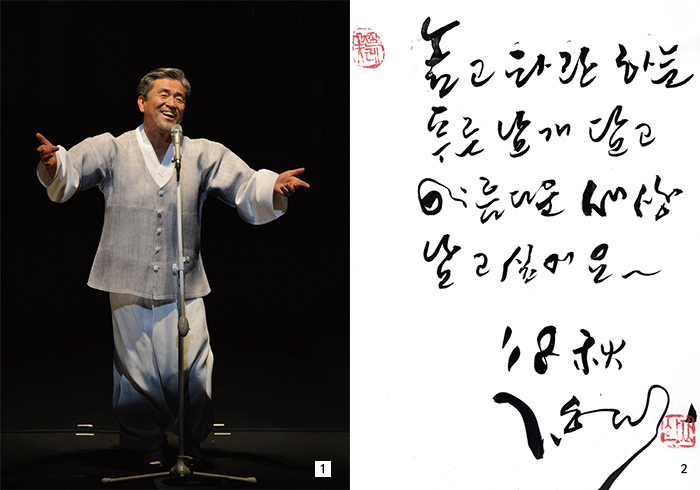 높고 파란 하늘
푸른 날개 달고
아름다운 세상
날고 싶어요~
'18 秋
1
2